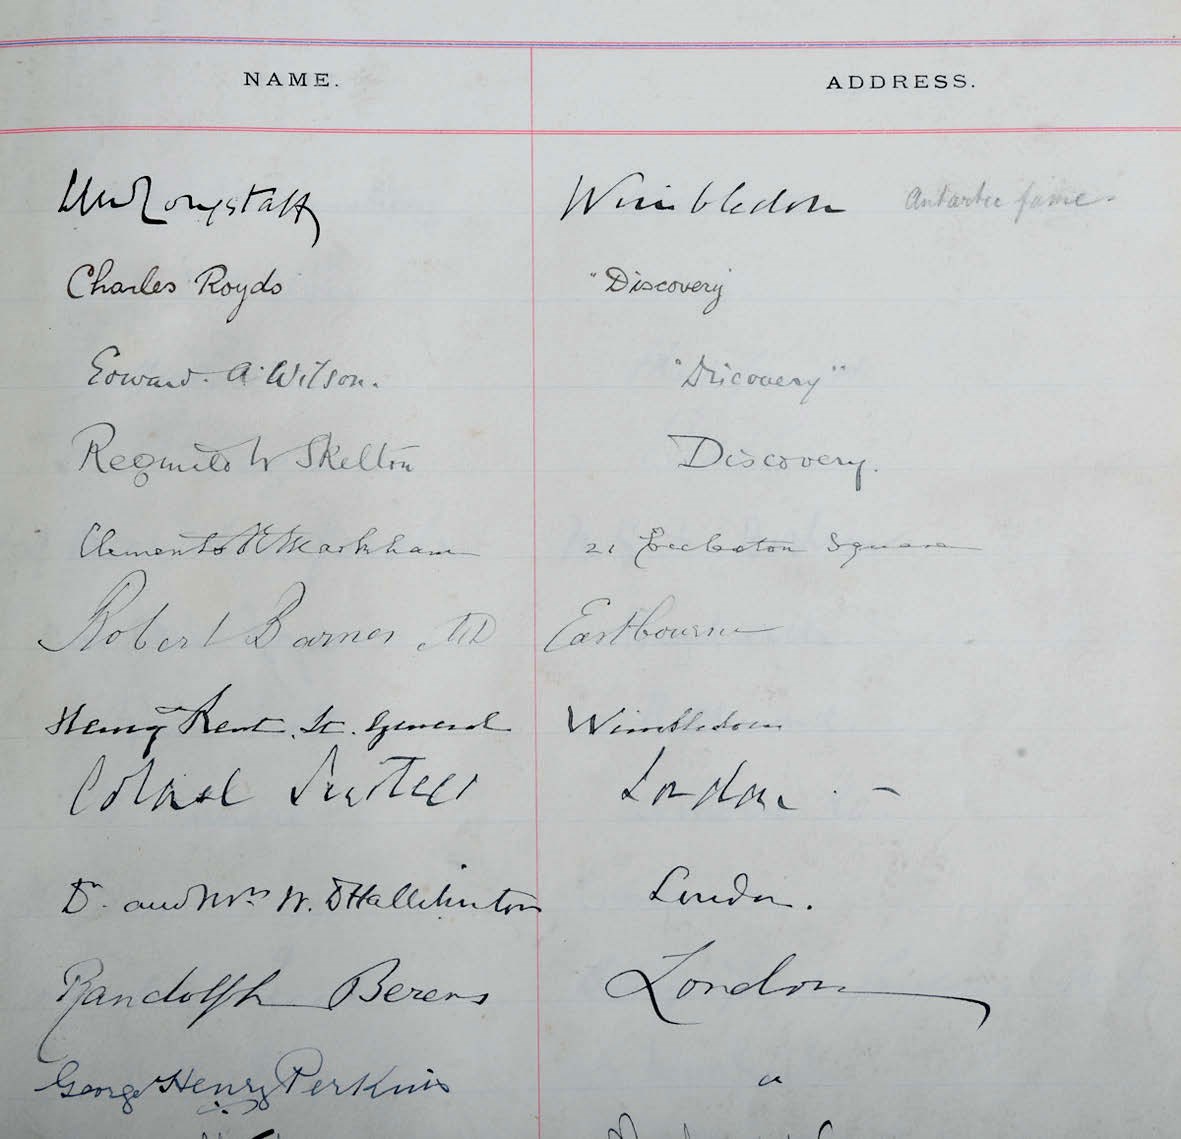 NAME. ADDRESS.
LlwLongstaff Wimbledon Antartic fame.
Charles Royds "Discovery"
Edward. A. Wilson. "Discovery"
Reginald W Skelton Discovery.
Clements R Markham 21 Eccleston Square
Robert Barnes MD Eastbourne
Henry Kent. Lt. General Wimbledon
Colonel London
Dr. and Mrs W. D Halliburton London.
Randolph Berens London
George Henry Perkins "